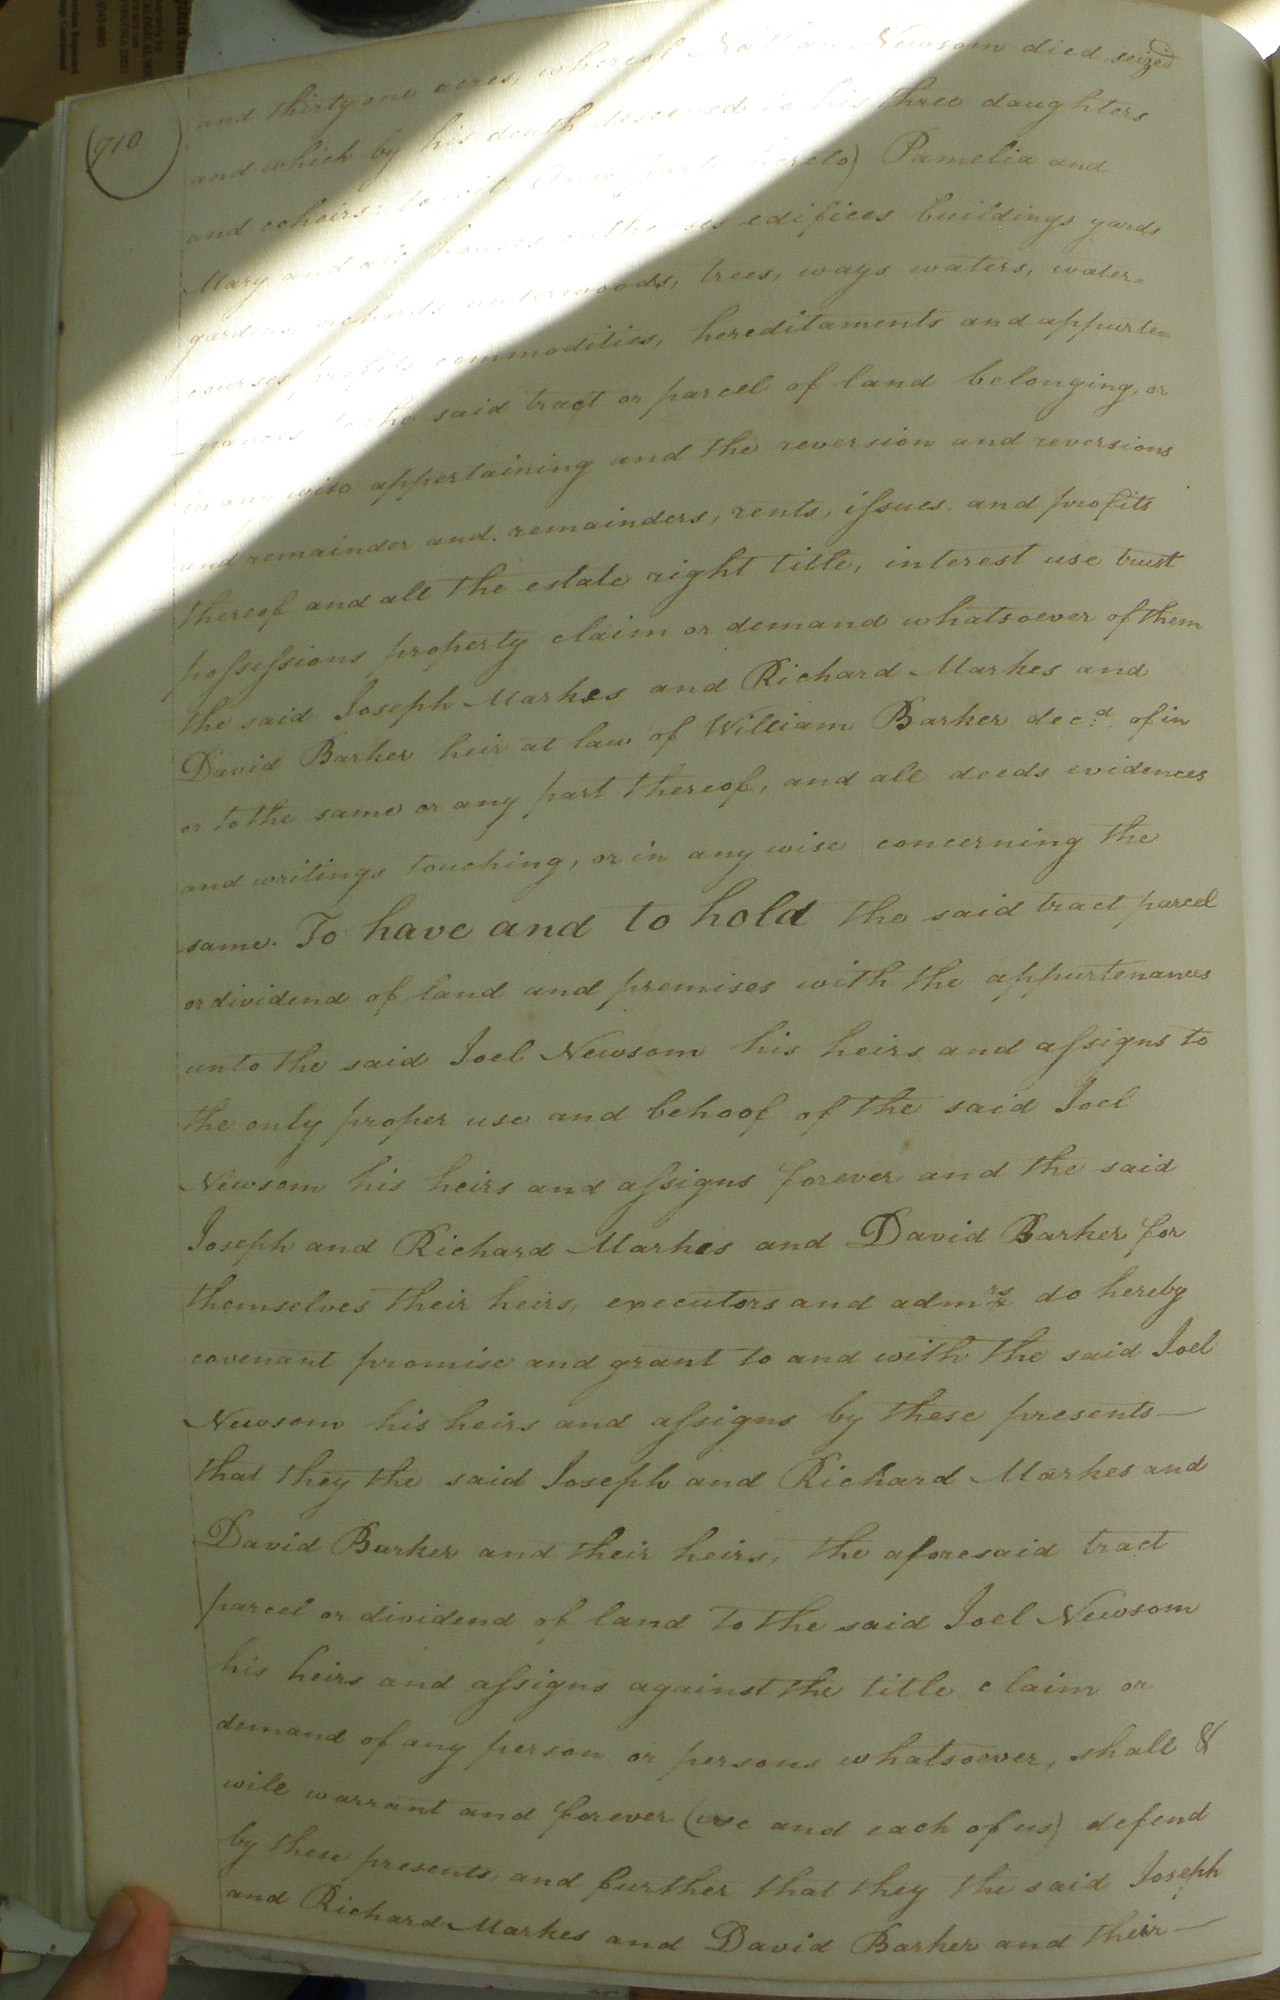 710
and thirty one acres, whereof Nathan Newsom died seized
and which by his death descened to his three daughters
and coheirs to wit (party hereto) Pamelia and
Mary and all houses outhouses edifices buildings yards
gardens, orchards underwoods, trees, ways waters, water-
courses profits commodities, hereditaments and appurte=
nances to the said tract or parcel of land belonging, or
in any wise appertaining and the reversion and reversions
and remainder and remainders, rents, issues and profits
thereof and all the estate right title, interest use trust
possessions property claim or demand whatsoever of them
the said Joseph Markes and Richard Markes and
David Barker heir at law of William Barker dec.d of in
or to the same or any part thereof, and all deeds evidences
and writings touching, or in any wise concerning the
same. To have and to hold the said tract parcel
or dividend of land and premises with the appurtenances
unto the said Joel Newsom his heirs and assigns to
the only proper use and behoof of the said Joel
Newsom his heirs and assigns forever and the said
Joseph and Richard Markes and David Barker for
themselves their heirs, executors and admrs do hereby
covenant promise and grant to and with the said Joel
Newsom his heirs and assigns by these presents—
that they the said Joseph and Richard Markes and
David Barker and their heirs, the aforesaid tract
parcel or dividend of land to the said Joel Newsom
his heirs and assigns against the title claim or
demand of any person or persons whatsoever, shall &
will warrant and forever (we and each of us) defend
by these presents, and further that they the said Joseph
and Richard Markes and David Barker and their—